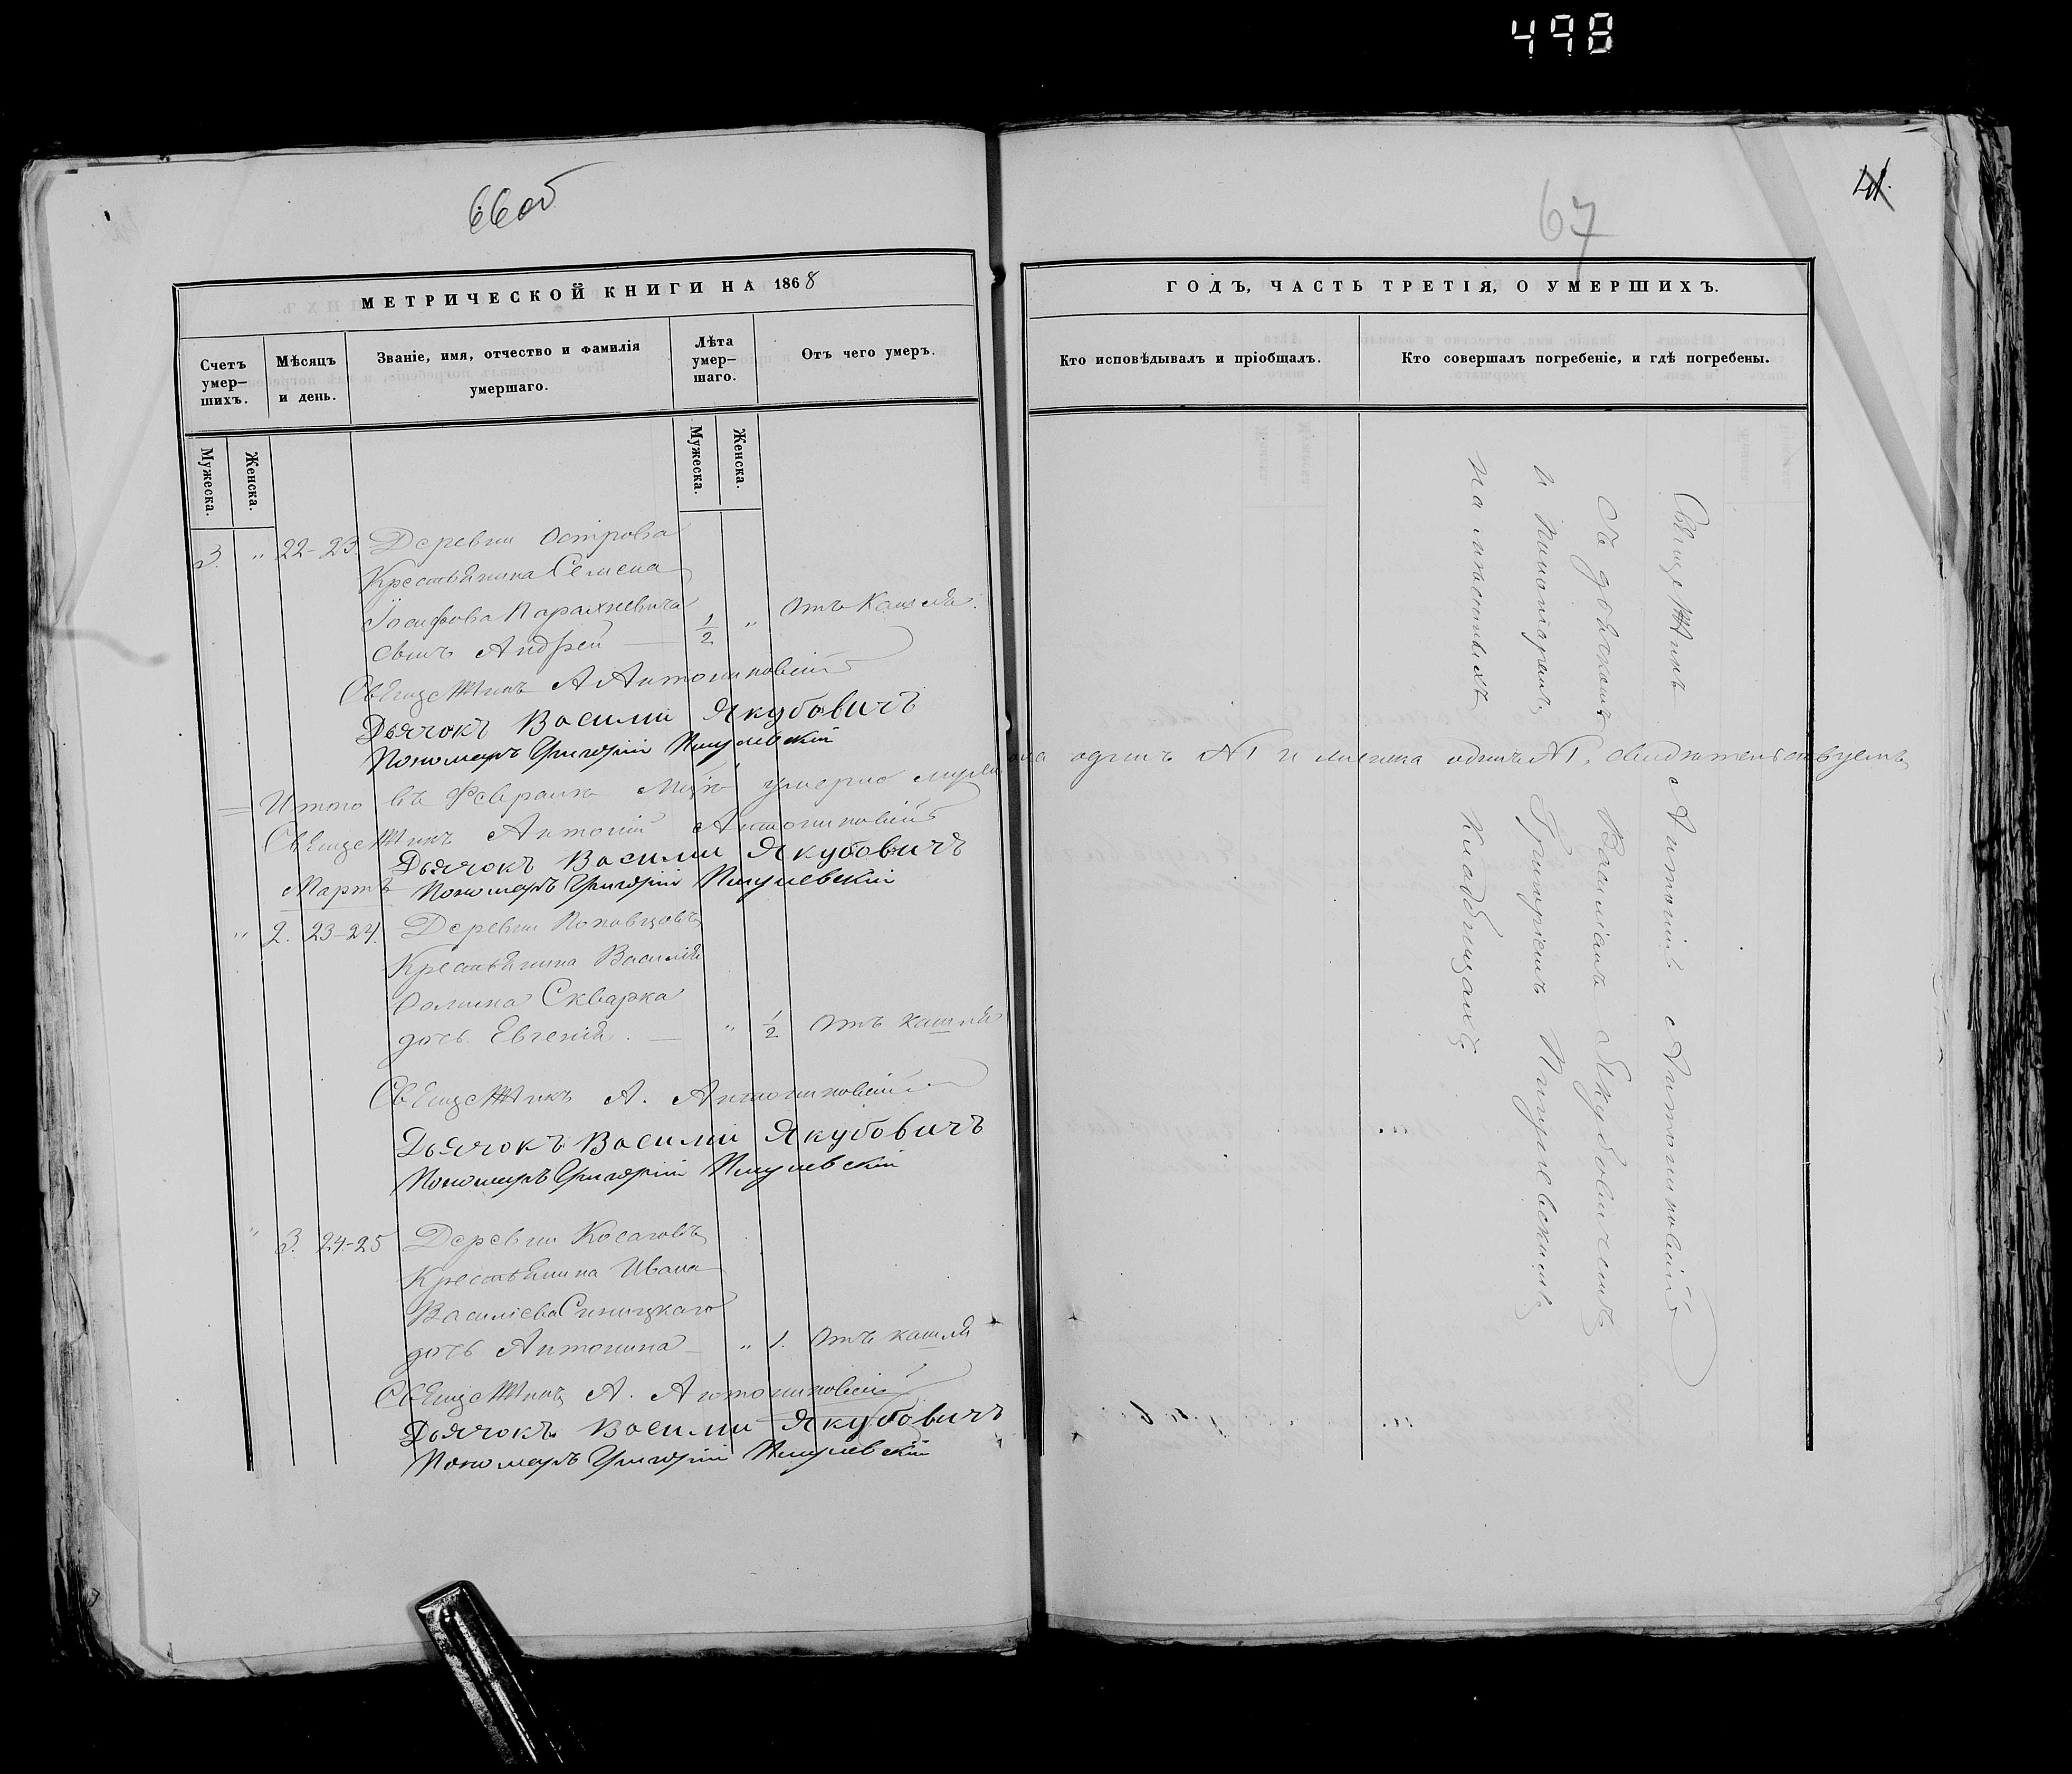 498
66об
МЕТРИЧЕСКОЙ КНИГИ НА 1868
Счетъ умер-шихъ.
Мѣсяцъ и день.
Званіе, имя, отчество и фамилія умершаго.
Лѣта умер-шаго.
Отъ чего умеръ.
Мужеска.
Женска.
Мужеска.
Женска.
3. " 22-23. Деревни Острова
Крестьянина Семена
Іосифова Парахневича
сынъ Андрей — 1/2 " Отъ Кашля.
Священникъ А Антониковскій
Дьячокъ Василий Якубовичъ
Пономарь Григорій Пигулевскій
= Итого въ Февралѣ Мцѣ умерло мужеска одинъ №1 и женска одинъ №1, свидѣтельствуемъ
Священникъ Антоній Антониковскій
Дьячокъ Василии Якубовичъ
Мартъ Пономарь Григорій Пигулевскій
" 2. 23-24. Деревни Поповцовъ
Крестьянина Василія
Фомина Скварка
дочь Евгенія. — " 1/2 Отъ кашля
Священникъ А. Антониковскій
Дьячокъ Василий Якубовичъ
Пономарь Григорій Пигулевскій
" 3. 24-25 Деревни Косаговъ
Крестьянина Ивана
Василіева Синицкаго
дочь Антонина — " 1. Отъ кашля
Священникъ А. Антониковскій
Дьячокъ Василии Якубовичъ
Пономарь Григорій Пигулевскій
67
41.
ГОДЪ, ЧАСТЬ ТРЕТІЯ, О УМЕРШИХЪ.
Кто исповѣдывалъ и пріобщалъ.
Кто совершалъ погребеніе, и гдѣ погребены.
Священникъ Антоній Антониковскій
Съ дьячкомъ Василіемъ Якубовичемъ
и Пономаремъ Григоріемъ Пигулевскимъ
на мѣстныхъ Кладбищахъ